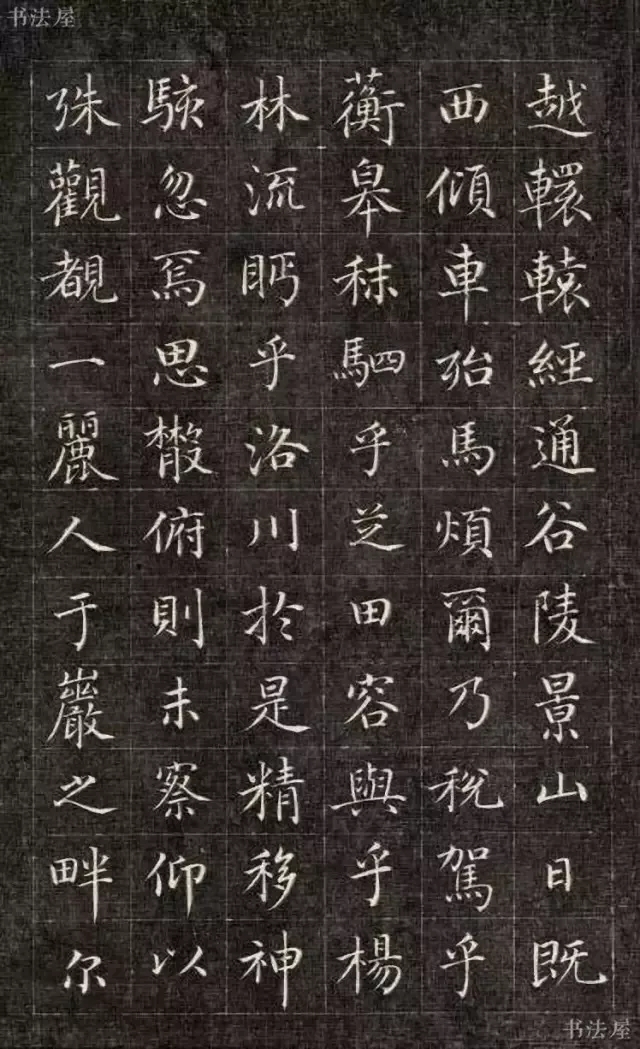 书法屋
越轘轅經通谷陵景山日既
西傾車殆馬煩爾乃稅駕乎
蘅皋秣駟乎芝田容與乎楊
林流眄乎洛川於是精移神
駭忽焉思散俯則未察仰以
殊觀覩一麗人于巖之畔尔
书法屋